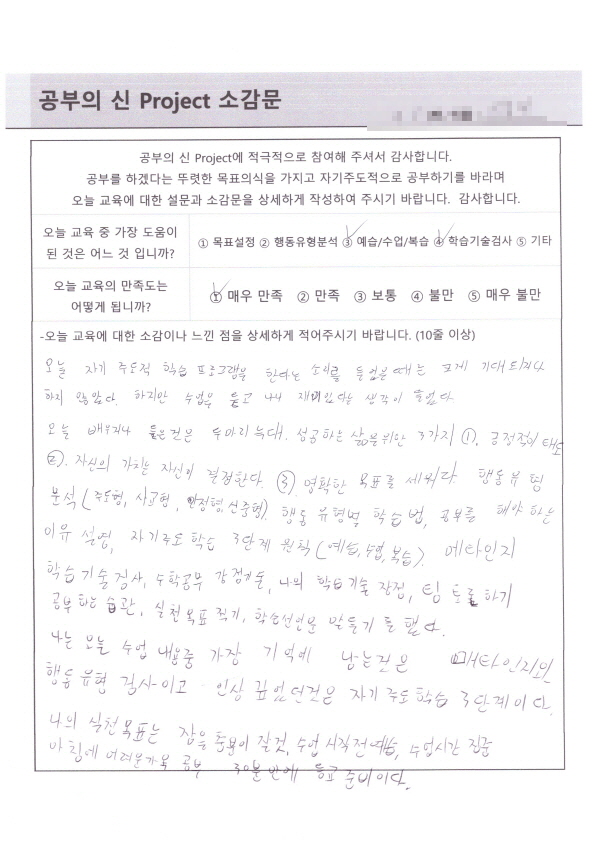 공부의 신 Project 소감문
공부의 신 Project에 적극적으로 참여해 주셔서 감사합니다.
공부를 하겠다는 뚜렷한 목표의식을 가지고 자기주도적으로 공부하기를 바라며
오늘 교육에 대한 설문과 소감문을 상세하게 작성하여 주시기 바랍니다. 감사합니다.
오늘 교육 중 가장 도움이
된 것은 어느 것 입니까?
① 목표설정 ② 행동유형분석 ③ 예습/수업/복습 ④ 학습기술검사 ⑤ 기타
오늘 교육의 만족도는
어떻게 됩니까?
① 매우 만족 ② 만족 ③ 보통 ④ 불만 ⑤ 매우 불만
-오늘 교육에 대한 소감이나 느낀 점을 상세하게 적어주시기 바랍니다. (10줄 이상)
오늘 자기 주도적 학습 프로그램을 한다는 소리를 들었을때는 크게 기대되거나
하지 않았다. 하지만 수업을 듣고 나니 재미있다는 생각이 들었다.
오늘 배우거나 들은건은 두마리늑대. 성공하는 삶을위한 3가지 ①. 긍정적인태도
②. 자신의 가치는 자신이 결정한다. ③. 명확한 목표를 세워다 행동유형
분석(주도형, 사교형, 안정형, 신중형). 행동 유형별 학습법, 공부를 해야 하는
이유 설명, 자기주도학습 3단계 원칙(예습,수업,복습). 메타인지
학습기술검사, 수학공부 감정기술, 나의 학습기술 장점, 팀 토론하기
공부하는 습관, 실천목표 적기, 학습선언문 만들기를 했다.
나는 오늘 수업 내용중 가장 기억에 남는건은 메타인지와
행동유형 검사이고 인상 깊었던건은 자기주도학습 3단계이다.
나의 실천목표는 잠을 충분이 잘것, 수업시작전예습, 수업시간 집중
아침에 어려운과목 공부 30분만에 등교준비이다.